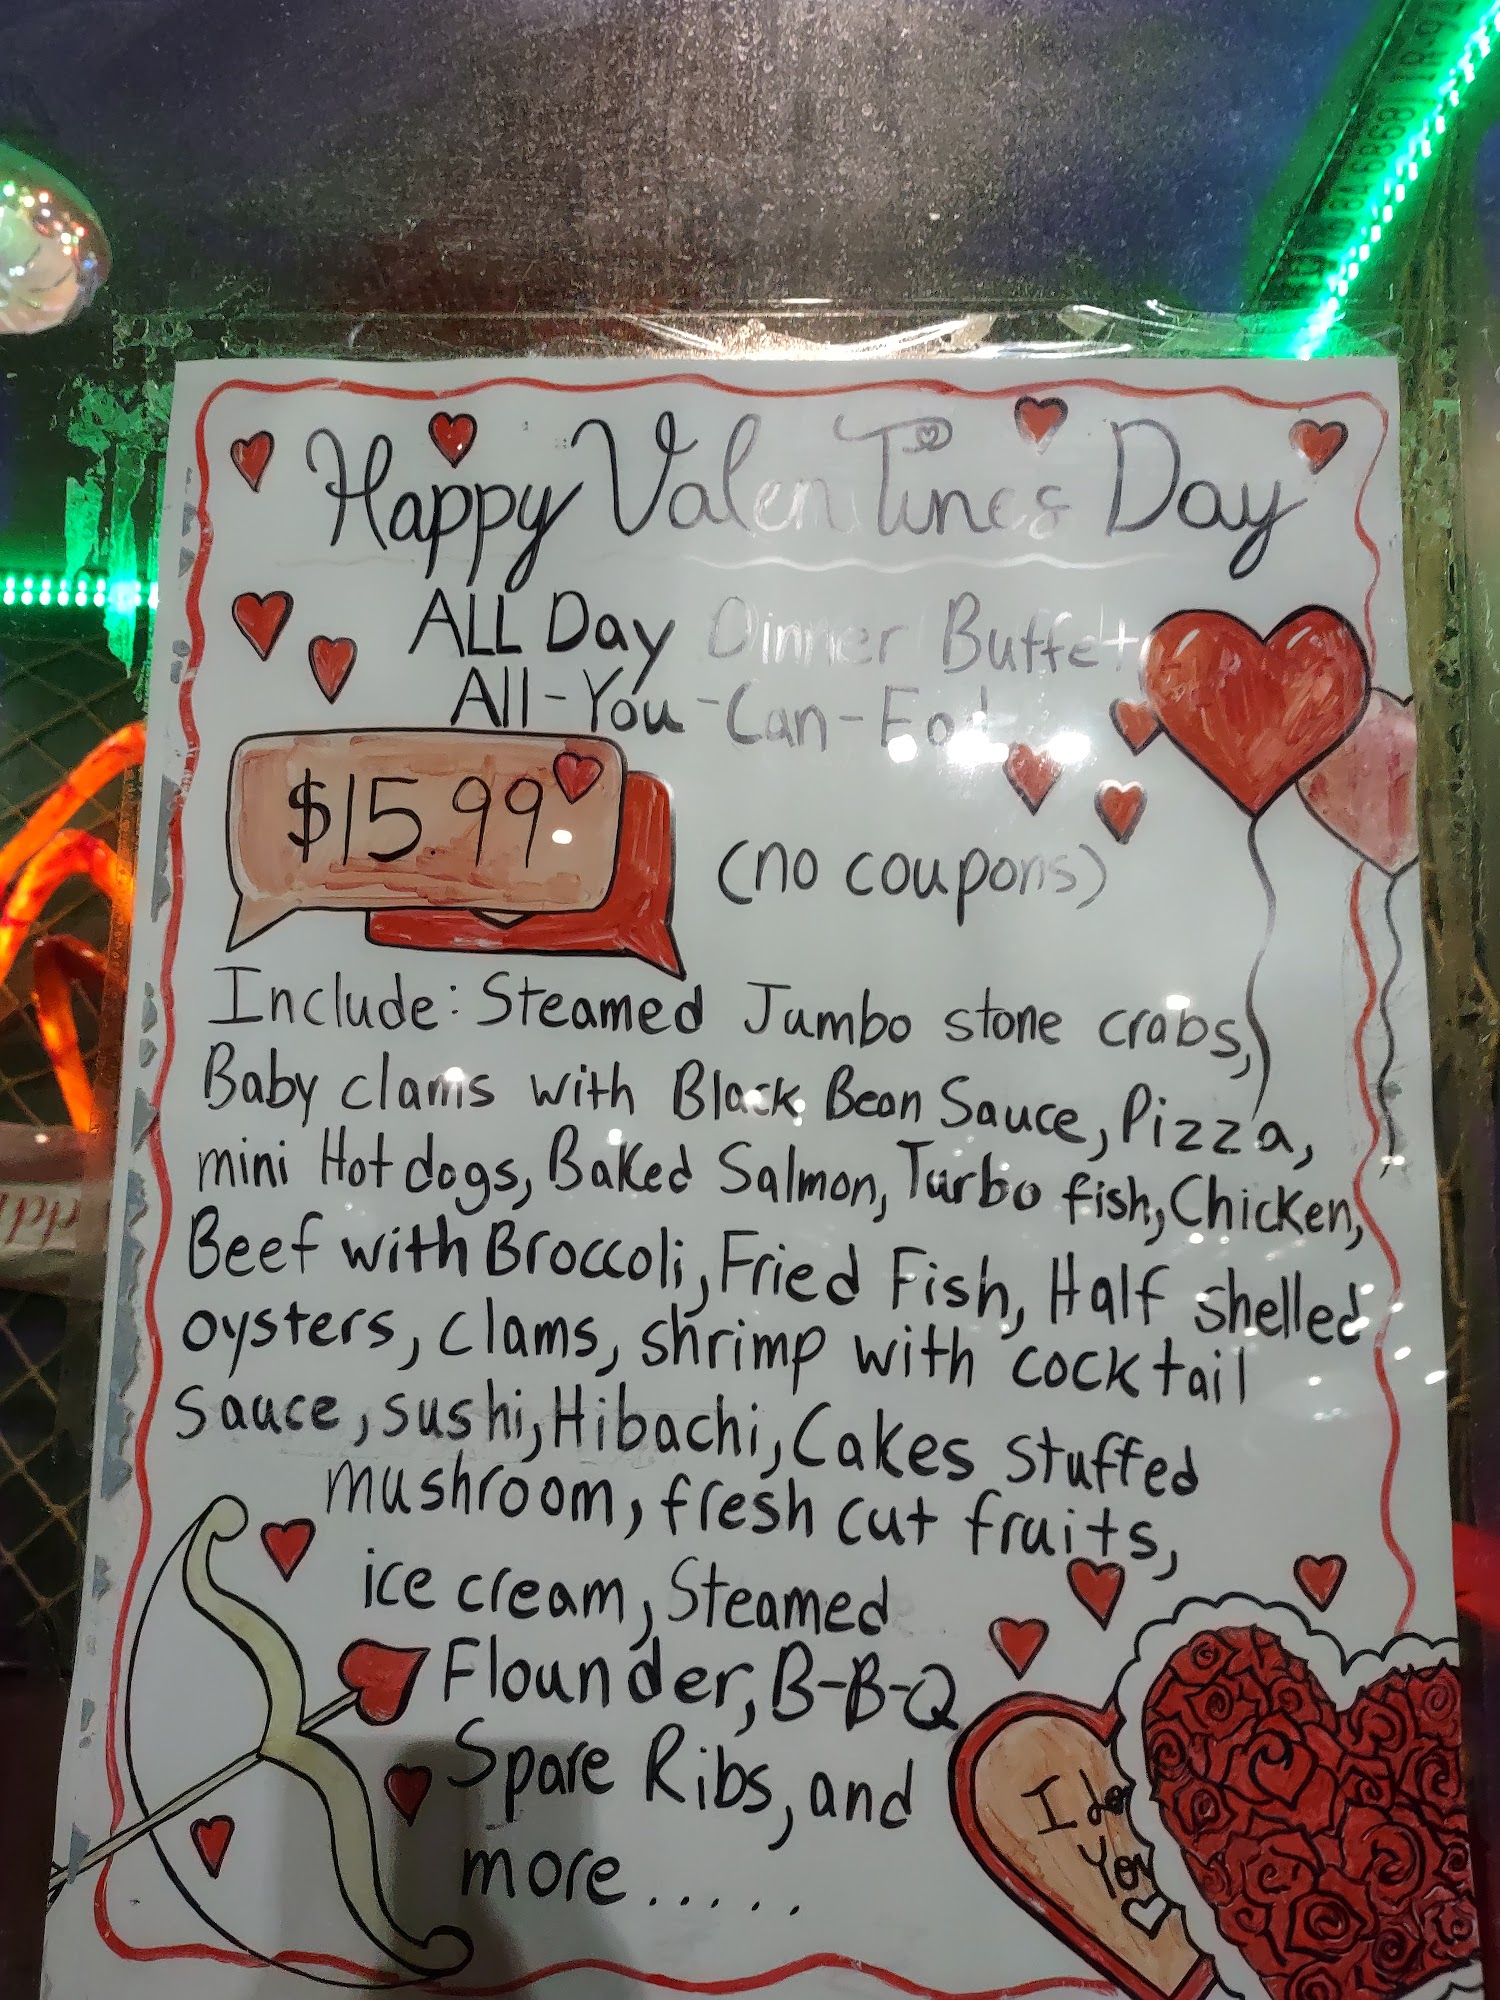 Happy Valentines Day
ALL Day Dinner Buffet
All-You-Can-Eat
$15.99
(no coupons)
Include: Steamed Jumbo stone crabs,
Baby clams with Black Bean Sauce, Pizza,
mini Hot dogs, Baked Salmon, Turbo fish, Chicken,
Beef with Broccoli, Fried Fish, Half shelled
oysters, clams, shrimp with cocktail
sauce, sushi, Hibachi, Cakes stuffed
mushroom, fresh cut fruits,
ice cream, Steamed
Flounder, B-B-Q
Spare Ribs, and
more.....
I
You